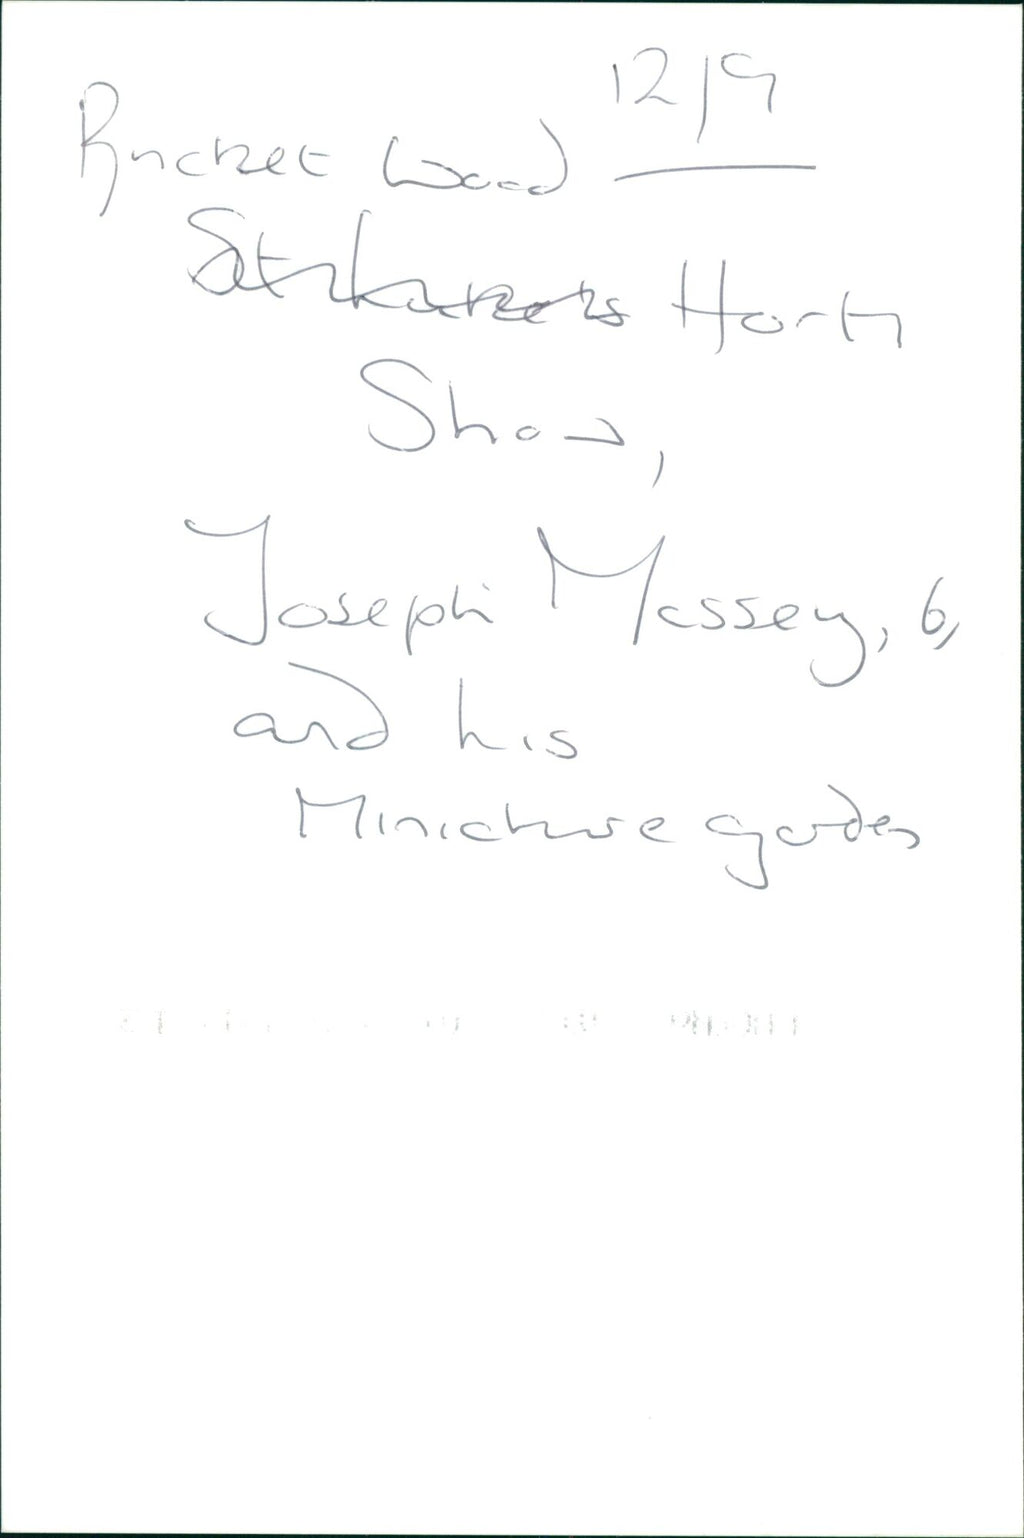 12/9
Bricket Wood
Horti
Show,
Joseph Massey, 6,
and his
Miniature garden